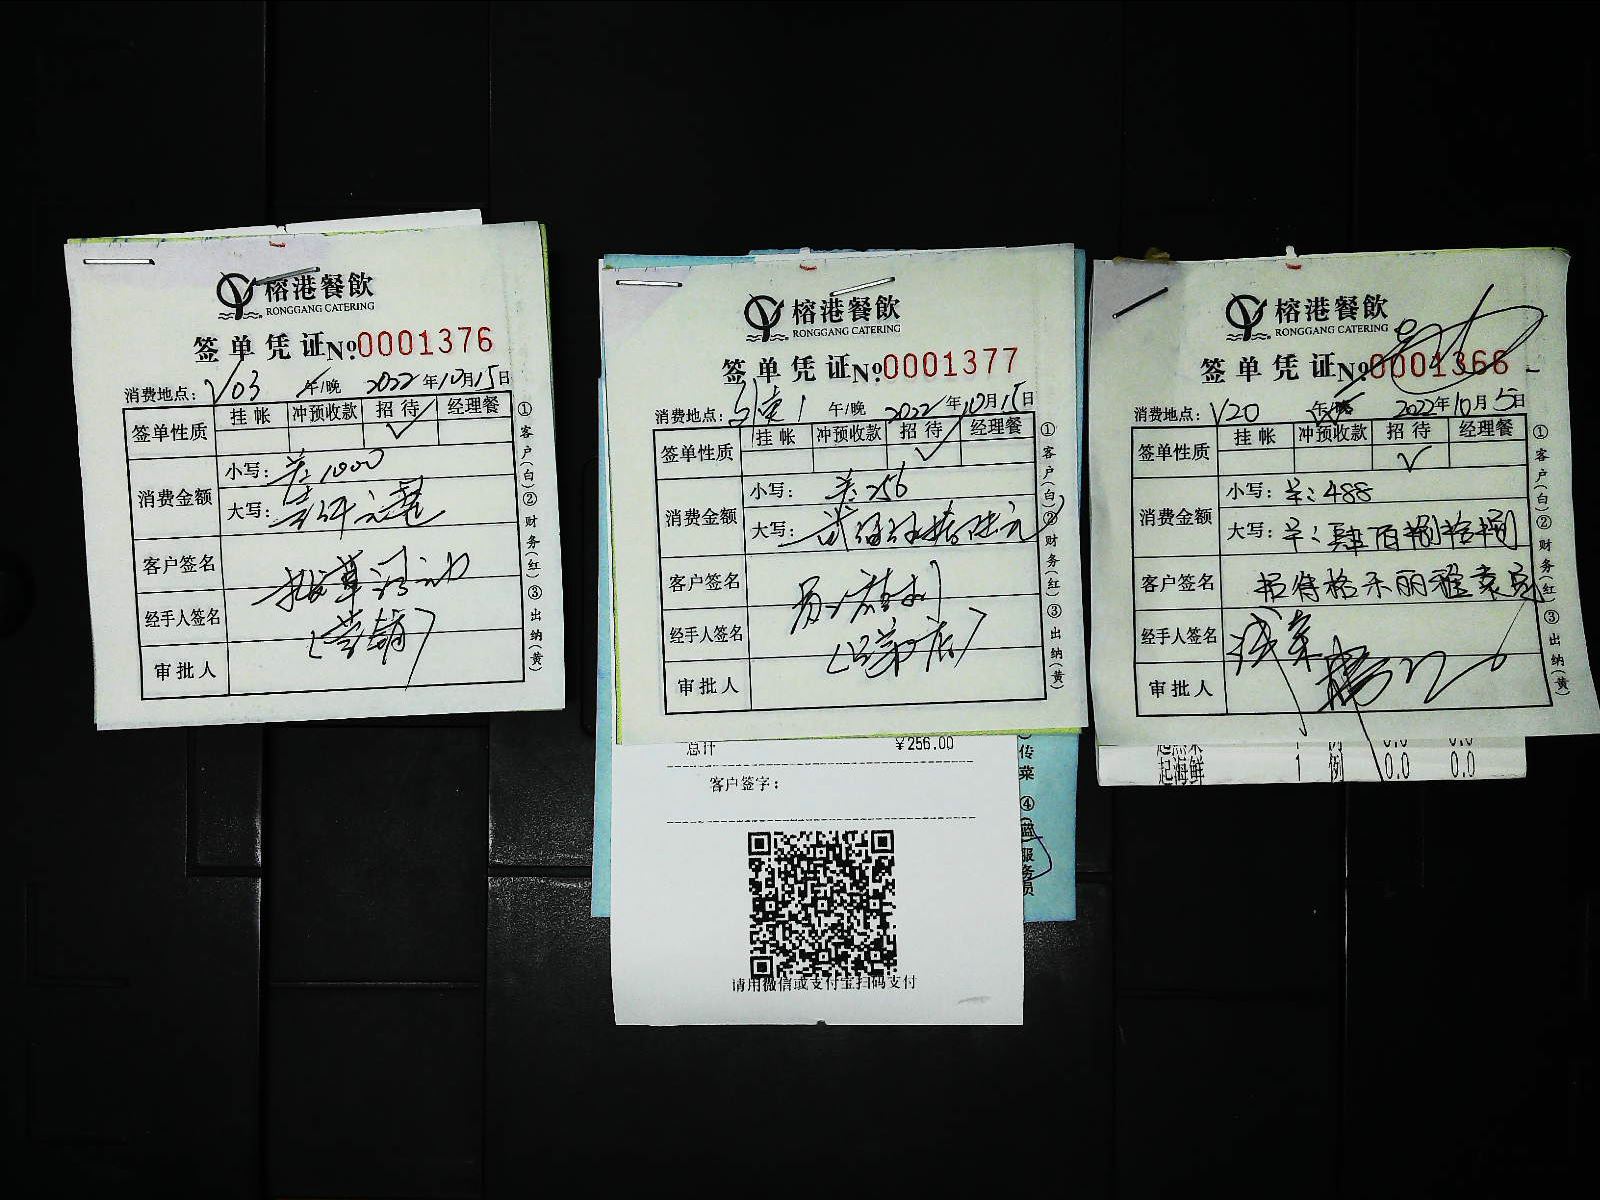 榕港餐飲
RONGGANG CATERING
签单凭证 No.0001376
消费地点: V03 午/晚 2022年10月15日
签单性质 挂帐 冲预收款 招待 经理餐
✓
消费金额
小写: 1000
大写:
客户签名
经手人签名
审批人
①客户(白)②财务(红)③出纳(黄)
榕港餐飲
RONGGANG CATERING
签单凭证 No.0001377
消费地点: 午/晚 2022年10月15日
签单性质 挂帐 冲预收款 招待 经理餐
✓
消费金额
小写: 256
大写: 贰佰伍拾陆元
客户签名
经手人签名
审批人
①客户(白)②财务(红)③出纳(黄)
总计 ¥256.00
客户签字:
请用微信或支付宝扫码支付
传菜 ④(蓝)服务员
榕港餐飲
RONGGANG CATERING
签单凭证 No.0001366
消费地点: V20 午/晚 2022年10月5日
签单性质 挂帐 冲预收款 招待 经理餐
✓
消费金额
小写: 488
大写: 肆佰捌拾捌
客户签名
经手人签名
审批人
①客户(白)②财务(红)③出纳(黄)
起海鲜 1 例 0.0 0.0